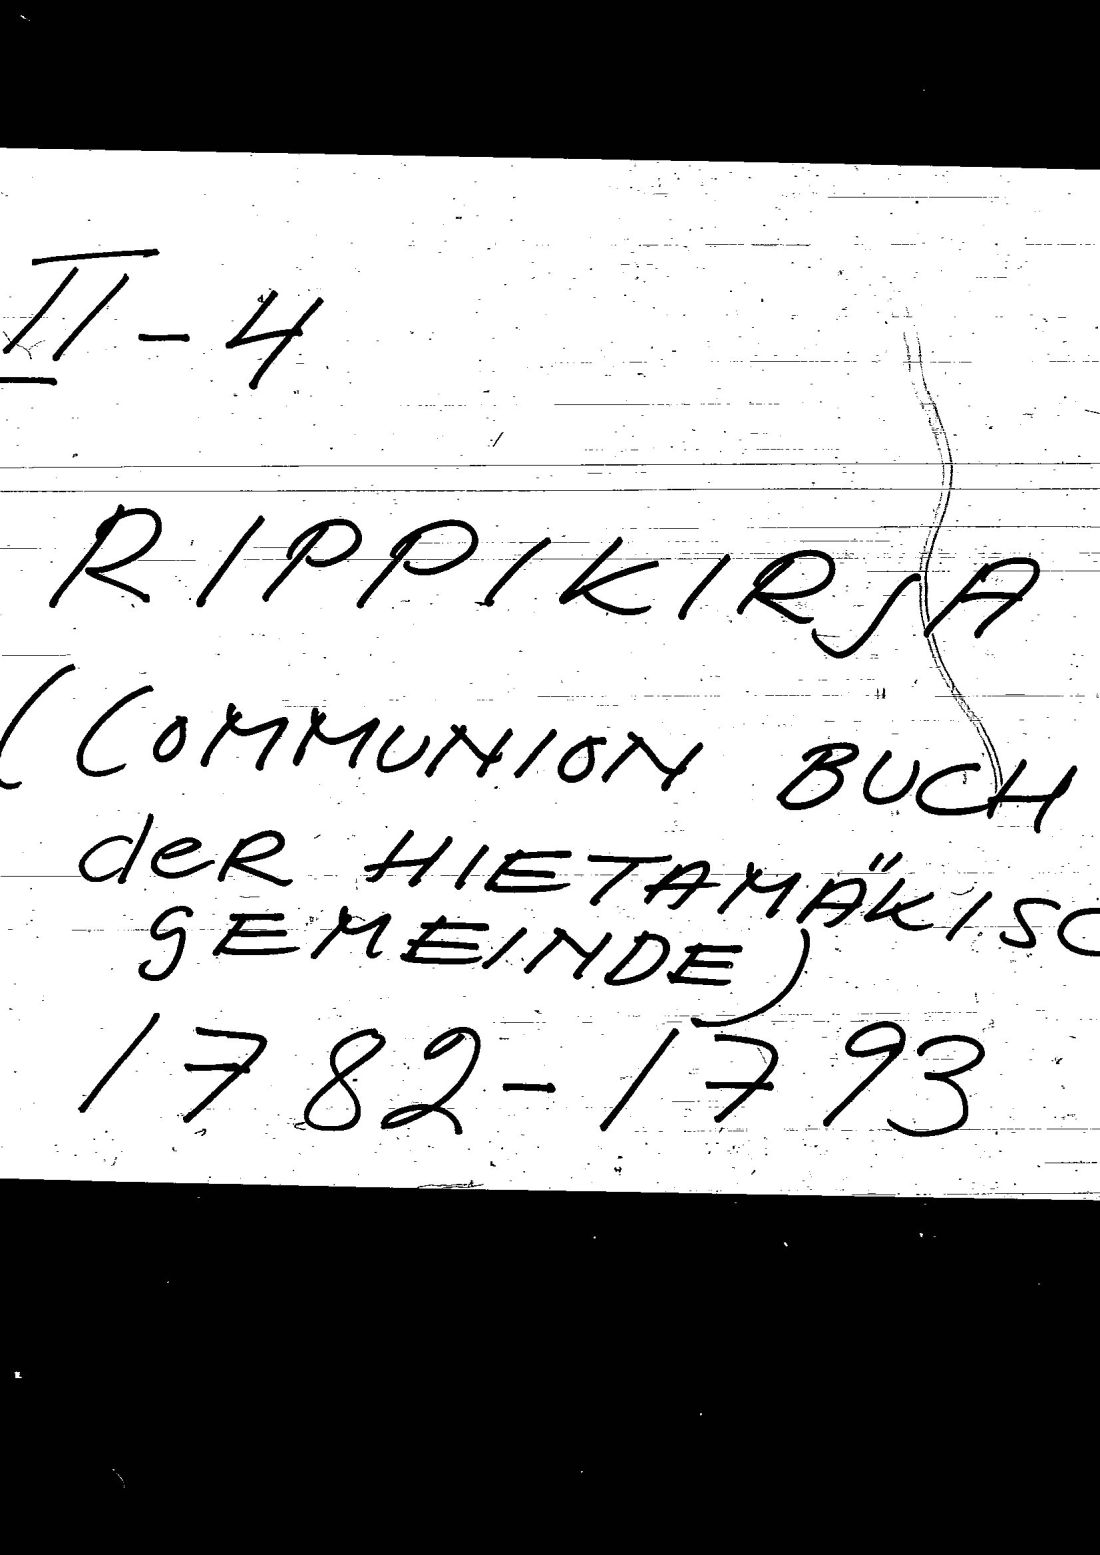 II-4
RIPPIKIRJA
(COMMUNION BUCH
der HIETAMÄKISC
GEMEINDE)
1782-1793